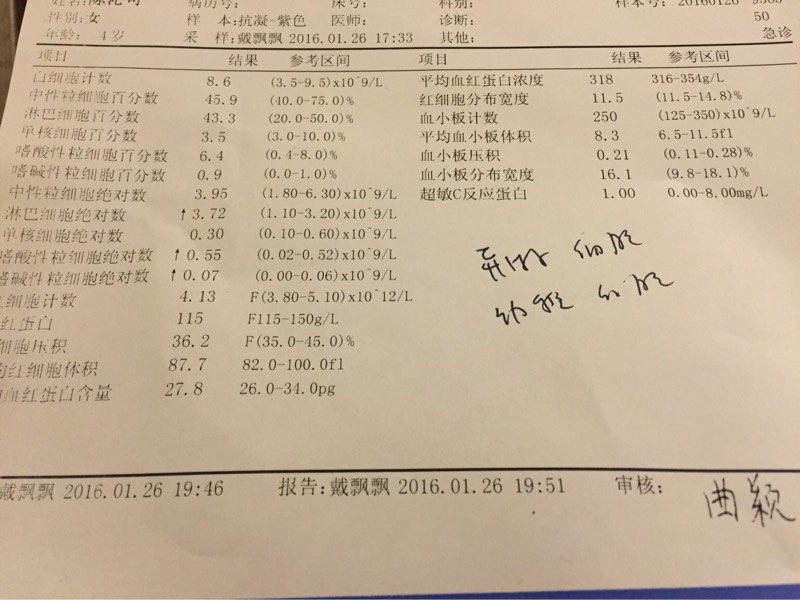 病历号: 床号: 科别: 样本号:
性别:女 样 本:抗凝-紫色 医师: 诊断: 50
年龄: 4岁 采 样:戴飘飘 2016.01.26 17:33 其他: 急诊
项目 结果 参考区间 项目 结果 参考区间
白细胞计数 8.6 (3.5-9.5)x10^9/L 平均血红蛋白浓度 318 316-354g/L
中性粒细胞百分数 45.9 (40.0-75.0)% 红细胞分布宽度 11.5 (11.5-14.8)%
淋巴细胞百分数 43.3 (20.0-50.0)% 血小板计数 250 (125-350)x10^9/L
单核细胞百分数 3.5 (3.0-10.0)% 平均血小板体积 8.3 6.5-11.5fl
嗜酸性粒细胞百分数 6.4 (0.4-8.0)% 血小板压积 0.21 (0.11-0.28)%
嗜碱性粒细胞百分数 0.9 (0.0-1.0)% 血小板分布宽度 16.1 (9.8-18.1)%
中性粒细胞绝对数 3.95 (1.80-6.30)x10^9/L 超敏C反应蛋白 1.00 0.00-8.00mg/L
淋巴细胞绝对数 ↑3.72 (1.10-3.20)x10^9/L
单核细胞绝对数 0.30 (0.10-0.60)x10^9/L
嗜酸性粒细胞绝对数 ↑0.55 (0.02-0.52)x10^9/L
嗜碱性粒细胞绝对数 ↑0.07 (0.00-0.06)x10^9/L
细胞计数 4.13 F(3.80-5.10)x10^12/L
红蛋白 115 F115-150g/L
细胞压积 36.2 F(35.0-45.0)%
均红细胞体积 87.7 82.0-100.0fl
血红蛋白含量 27.8 26.0-34.0pg
戴飘飘 2016.01.26 19:46 报告:戴飘飘 2016.01.26 19:51 审核: 曲颖